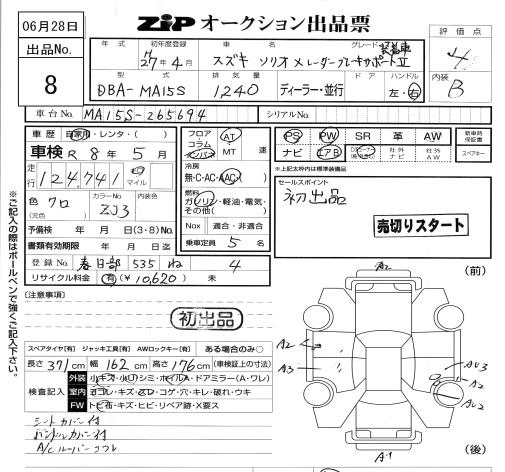 06月28日
ZIP オークション出品票
出品No.
8
評価点
4
内装
B
年式 初年度登録 車名 グレード
H27年4月 スズキ ソリオ Xレーダーブレーキサポート装着車
型式 排気量 ドア ハンドル
DBA-MA15S 1,240 ディーラー・並行 左・右
車台No. MA15S-265694 シリアルNo.
車歴 自家用・レンタ・( )
車検 R 8年 5月
走行 124,741 キロ マイル
フロア コラム インパネ AT MT 速
冷房
無・C・AC・AAC
PS PW SR 革 AW 新車時保証書
ナビ エアB 社外ナビ 社外AW スペアキー
※上記太枠内は標準装備品
色 クロ
(元色)
カラーNo. ZJ3 内装色
ガソリン・軽油・電気・その他( )
セールスポイント
初出品
売切りスタート
予備検 年 月 日(3・8)No.
Nox 適合・非適合
書類有効期限 年 月 日迄
乗車定員 5名
登録No. 春日部 535 ね 4
リサイクル料金 有(¥10,620) 未
[注意事項]
初出品
スペアタイヤ[有] ジャッキ工具[有] AWロックキー[有] ある場合のみ○
長さ 371cm 幅 162cm 高さ 176cm (車検証上の寸法)
検査記入
外装 小キズ・小凹・シミ・ホイルA・ドアミラー(A・ワレ)
室内 ヨゴレ・キズ・スレ・コゲ・穴・キレ・破れ・ウキ
FW トビ石・キズ・ヒビ・リペア跡・X要ス
シートカバー付
ハンドルカバー付
A/Cルーバーコワレ
※ご記入の際はボールペンで強くご記入下さい。
(前)
A2
A2
A3
AU3
A2
AU2
A1
(後)